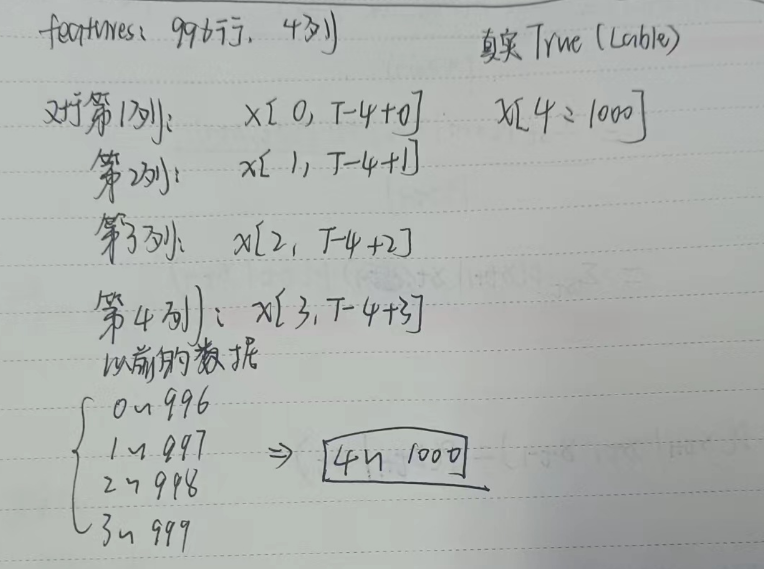 features: 996行, 4列
真实 True (Lable)
对于第1列: x[ 0, T-4+0]
x[4:1000]
第2列: x[ 1, T-4+1]
第3列: x[2, T-4+2]
第4列: x[3, T-4+3]
以前的数据
0~996
1~997
2~998
3~999
⇒ 4~1000